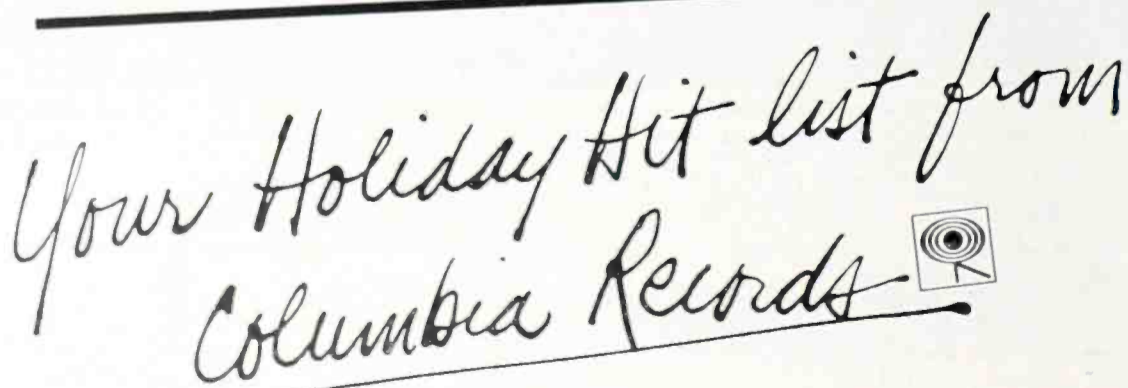 Your Holiday Hit list from
Columbia Records